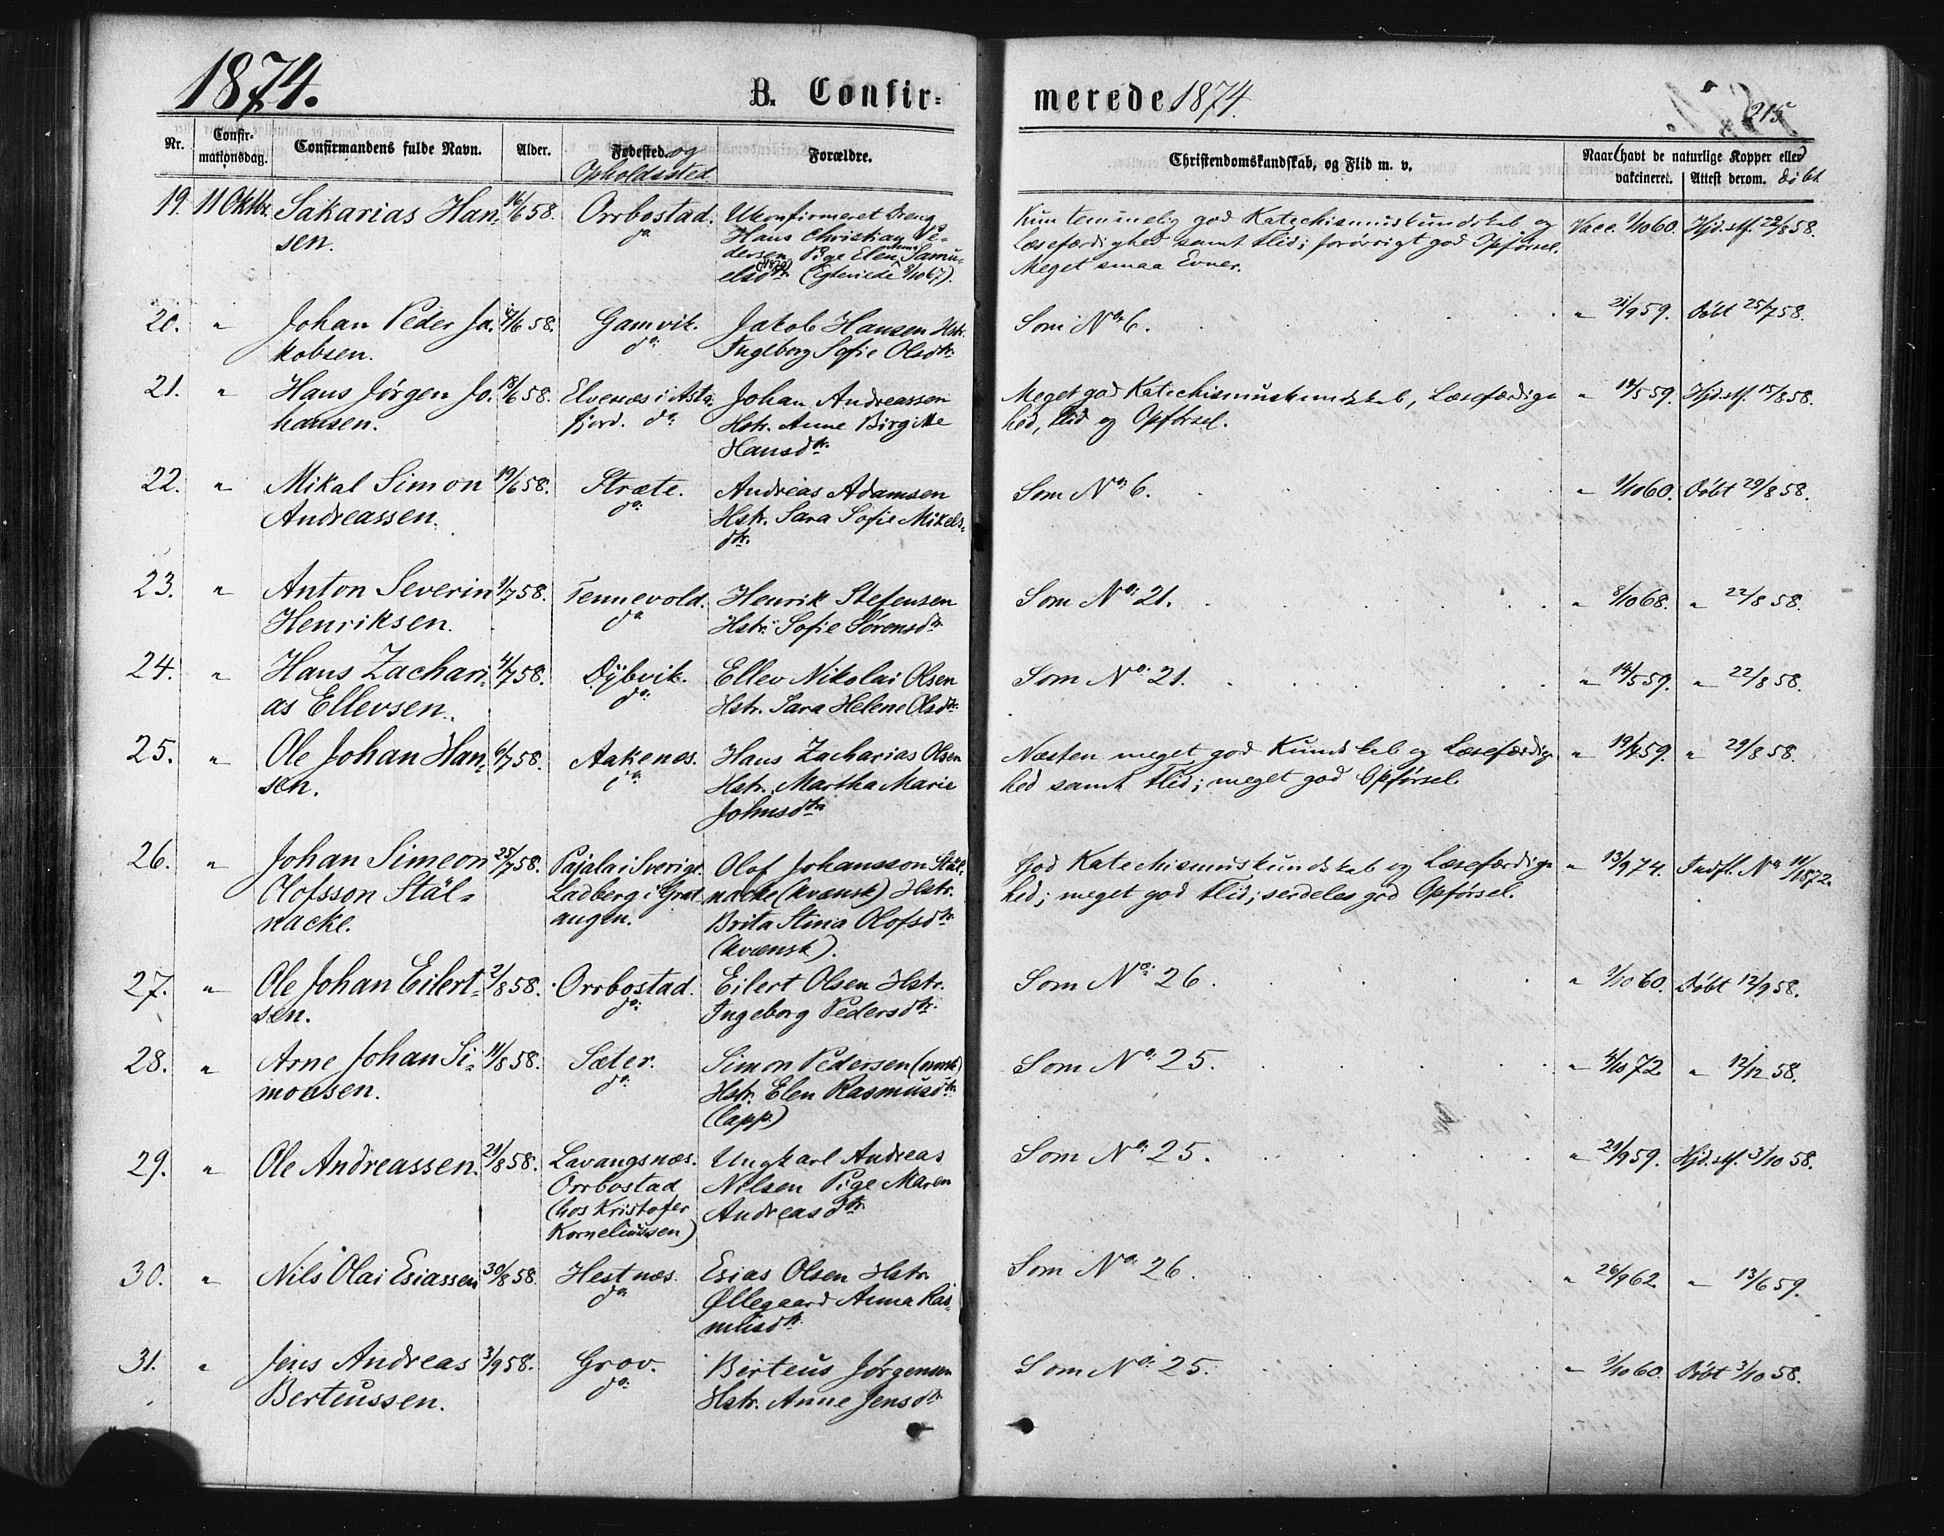 1874.
B. Confir-
merede 1874.
215
Nr.
Confir-
mationsdag.
Confirmandens fulde Navn.
Alder.
Fødested og
Opholdssted
Forældre.
Christendomskundskab, og Flid m. v.
Naar (havt de naturlige Kopper eller)
vakcineret.
Attest derom. Døbt
19. 11 Oktbr. Sakarias Han- 16/6 58. Orrbostad. Ukonfirmeret Dreng
sen. do Hans Christian Pe-
dersen Pige Elen Anna Samu-
elsdtr. (Egteviede 9/10 67).
Kun temmelig god Katechismuskundskab og Vacc. 9/10 60. Hjd.stf. 22/8 58.
Læsefærdighed samt Flid; forøvrigt god Opførsel.
Meget smaa Evner.
20. " Johan Peder Ja- /6 58. Gamvik. Jakob Hansen Hstr.
kobsen. do Ingeborg Sofie Olsdtr.
Som No 6. " 21/9 59. Døbt 25/7 58.
21. " Hans Jørgen Jo- 18/6 58. Elvenæs i Asta- Johan Andreassen
hansen. fjord. do Hstr. Anne Birgitte
Hansdtr.
Meget god Katechismuskundskab, Læsefærdig- " 14/5 59. Hjd.stf. 15/8 58.
hed, Flid og Opførsel.
22. " Mikal Simon 19/6 58. Stræte. Andreas Adamsen
Andreassen. do Hstr. Sara Sofie Mikels-
dtr.
Som No 6. " 9/10 60. Døbt 29/8 58.
23. " Anton Severin 1/7 58. Tennevold. Henrik Stefensen
Henriksen. do Hstr. Sofie Sørensdtr.
Som No 21. " 8/10 68. " 22/8 58.
24. " Hans Zachari- 4/7 58. Dybvik. Ellev Nikolai Olsen
as Ellevsen. do Hstr. Sara Helene Olsdtr.
Som No 21. " 14/5 59. " 22/8 58.
25. " Ole Johan Han- 6/7 58. Aakenes. Hans Zacharias Olsen
sen. do Hstr. Martha Marie
Johnsdtr
Næsten meget god Kundskab og Læsefærdig- " 59. " 29/8 58.
hed samt Flid; meget god Opførsel.
26. " Johan Simeon 25/7 58. Pajala i Sverige. Olof Johansson Stäl-
Olofsson Stäl- Ladberg i Grat- nacke (kvænsk) Hstr.
nacke. angen. Brita Stina Olofsdtr
(kvænsk).
God Katechismuskundskab og Læsefærdig- " 13/9 74. Indfl. No 11/1872.
hed; meget god Flid; serdeles god Opførsel.
27. " Ole Johan Eilert- 2/8 58. Orrbostad. Eilert Olsen Hstr.
sen. do Ingeborg Pedersdtr.
Som No 26. " 9/10 60. Døbt 12/9 58.
28. " Arne Johan Si- 11/8 58. Sæter. Simon Pedersen (norsk)
monsen. do Hstr. Elen Rasmusdtr.
(lapp.)
Som No 25. " 4/10 72 " 12/12 58.
29. " Ole Andreassen. 21/8 58. Lavangsnæs. Ungkarl Andreas
Orrbostad Nilsen Pige Maren
(hos Kristofer Andreasdtr.
Korneliussen)
Som No 25. " 21/9 59. Hjd.stf. 3/10 58.
30. " Nils Olai Esiassen 30/8 58. Hestnæs. Esias Olsen Hstr.
do Øllegaard Anna Ras-
musdtr.
Som No 26. " 26/9 62 " 13/6 59.
31. " Jens Andreas 3/9 58. Grov. Berteus Jørgensen
Berteussen. do Hstr. Anne Jensdtr
Som No 25. " 9/10 60. Døbt 3/10 58.